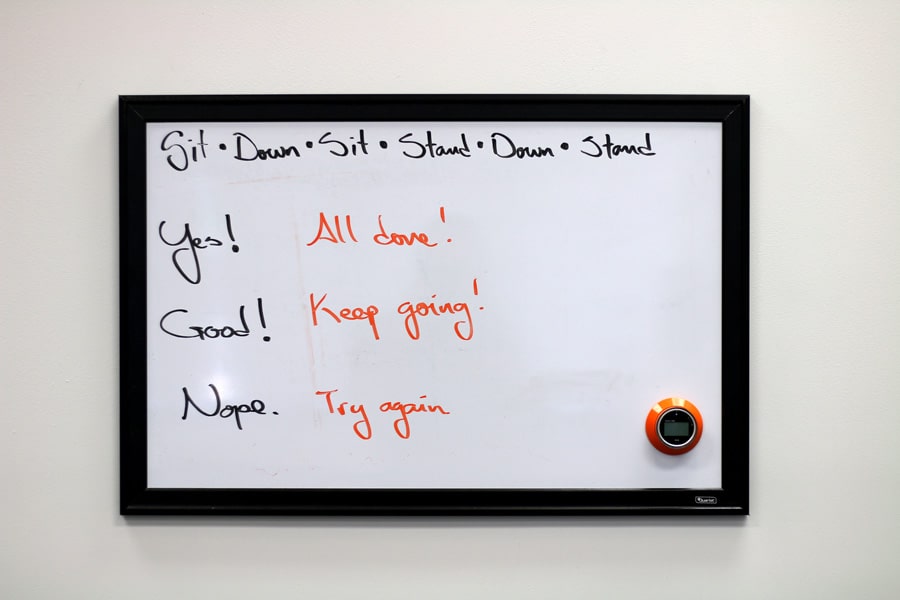 Sit • Down • Sit • Stand • Down • Stand
Yes! All done!
Good! Keep going!
Nope. Try again
Quartet